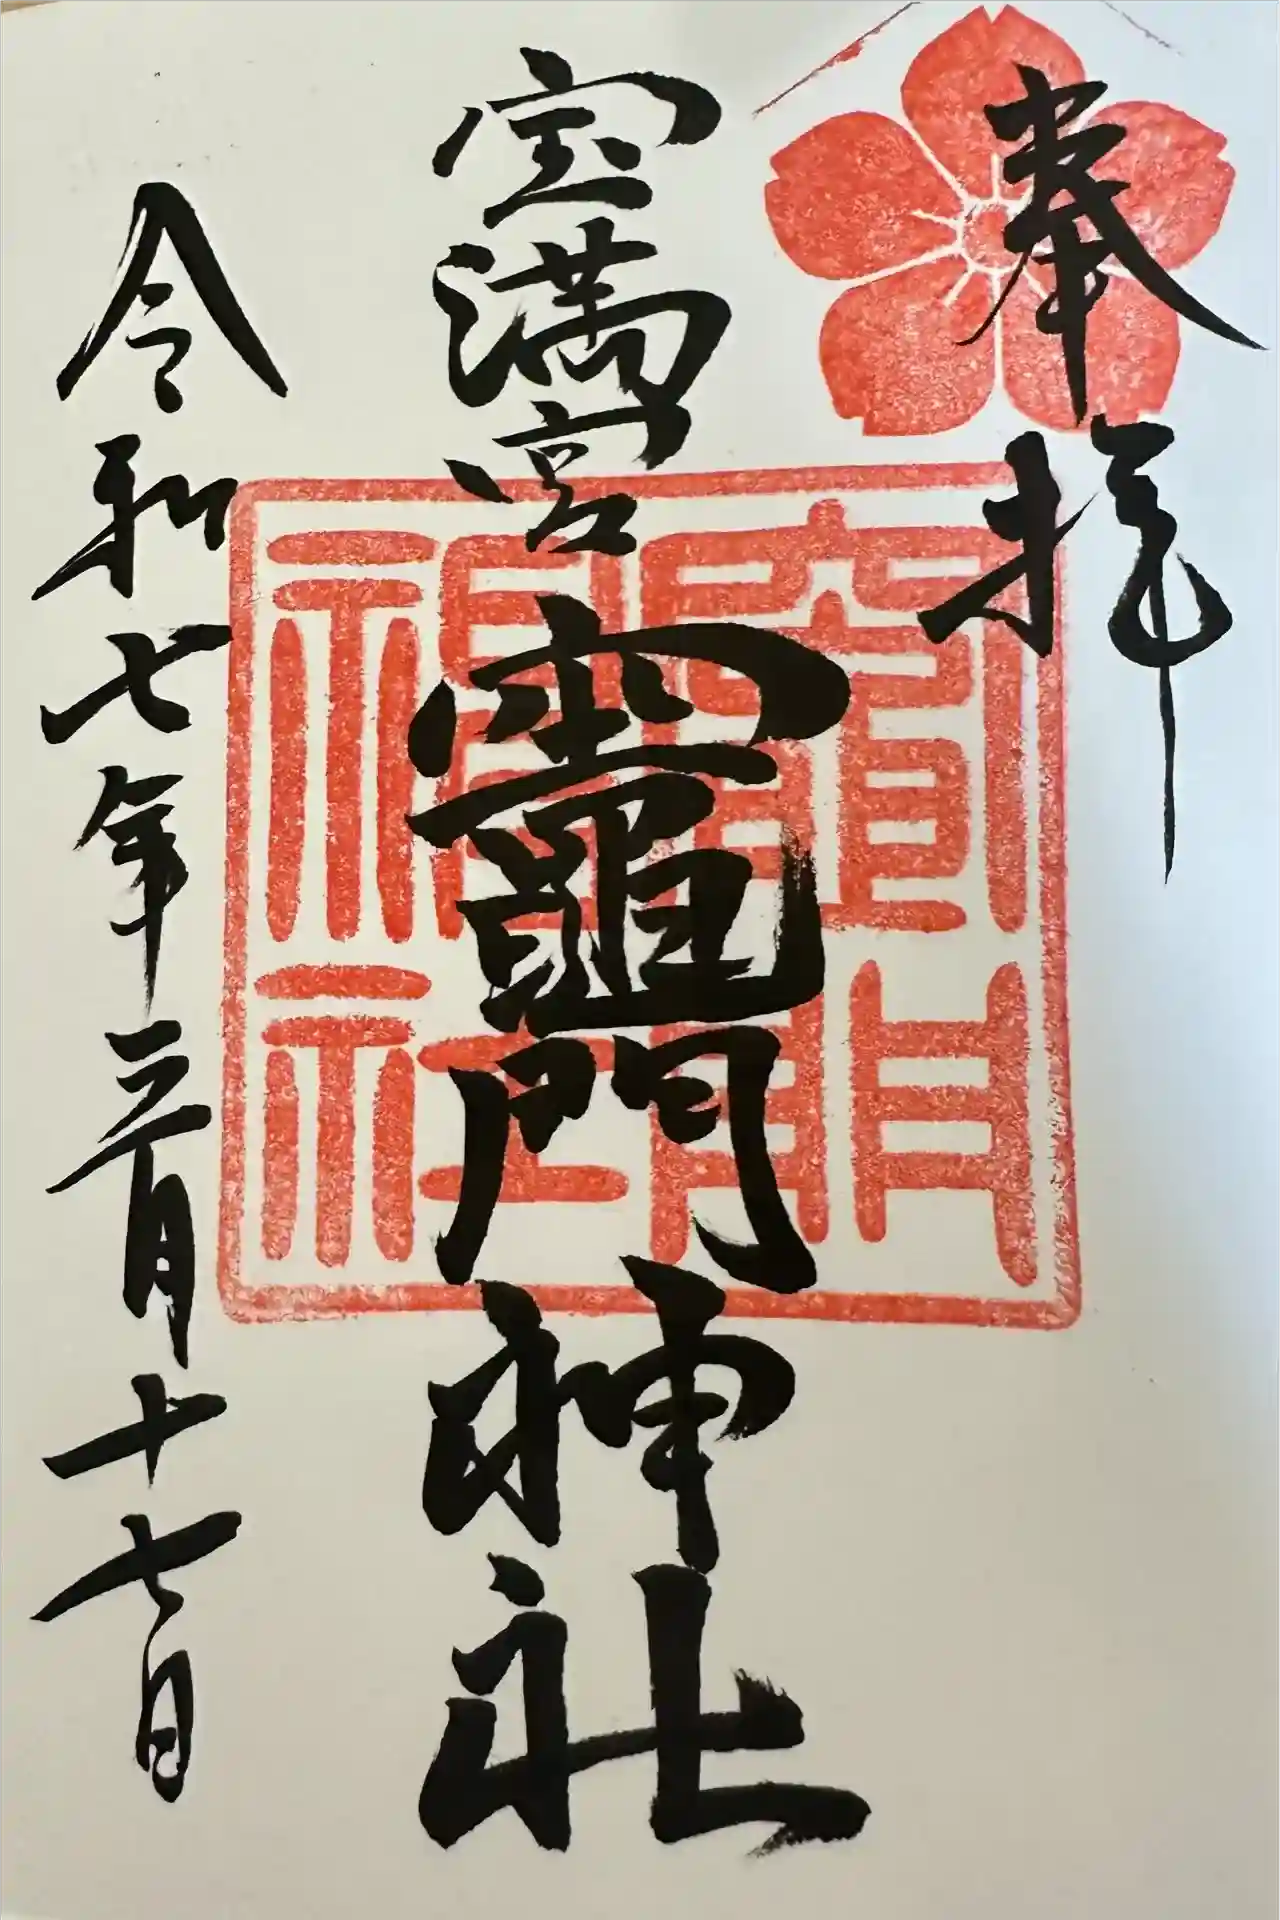 奉拝
宝満宮 竈門神社
令和七年三月十七日
竈門神社